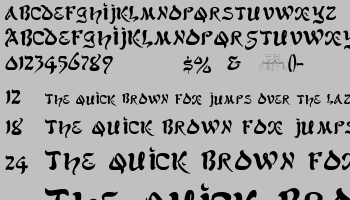 ABCDEFGHIJKLMNOPQRSTUVWXYZ
ABCDEFGHIJKLMNOPQRSTUVWXY
0123456789 $% & ()-
12 THE QUICK BROWN FOX JUMPS OVER THE LAZ
18 THE QUICK BROWN FOX JUMPS
24 THE QUICK BROWN FOX
THE QUICK BRO